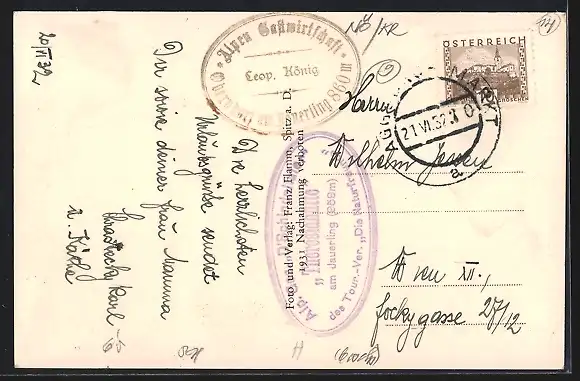 20/VI 32
Die herzlichsten
Urlaubsgrüße sendet
Dir sowie deiner Frau Mamma
Karl
u. Käthe
Alpen Gastwirtschaft
Leop. König
am Jauerling 860 m
NÖ/KR
Foto und Verlag: Franz Flamm, Spitz a. D.
1931 Nachahmung verboten
"Theresienhütte"
am Jauerling (959m)
des Tour.-Ver. „Die Naturfreunde"
ÖSTERREICH
GROSCHEN
AGGSBACH MARKT
21.VI.32
a
Herrn
Wilhelm
Wien XII.,
Fockygasse 27/12